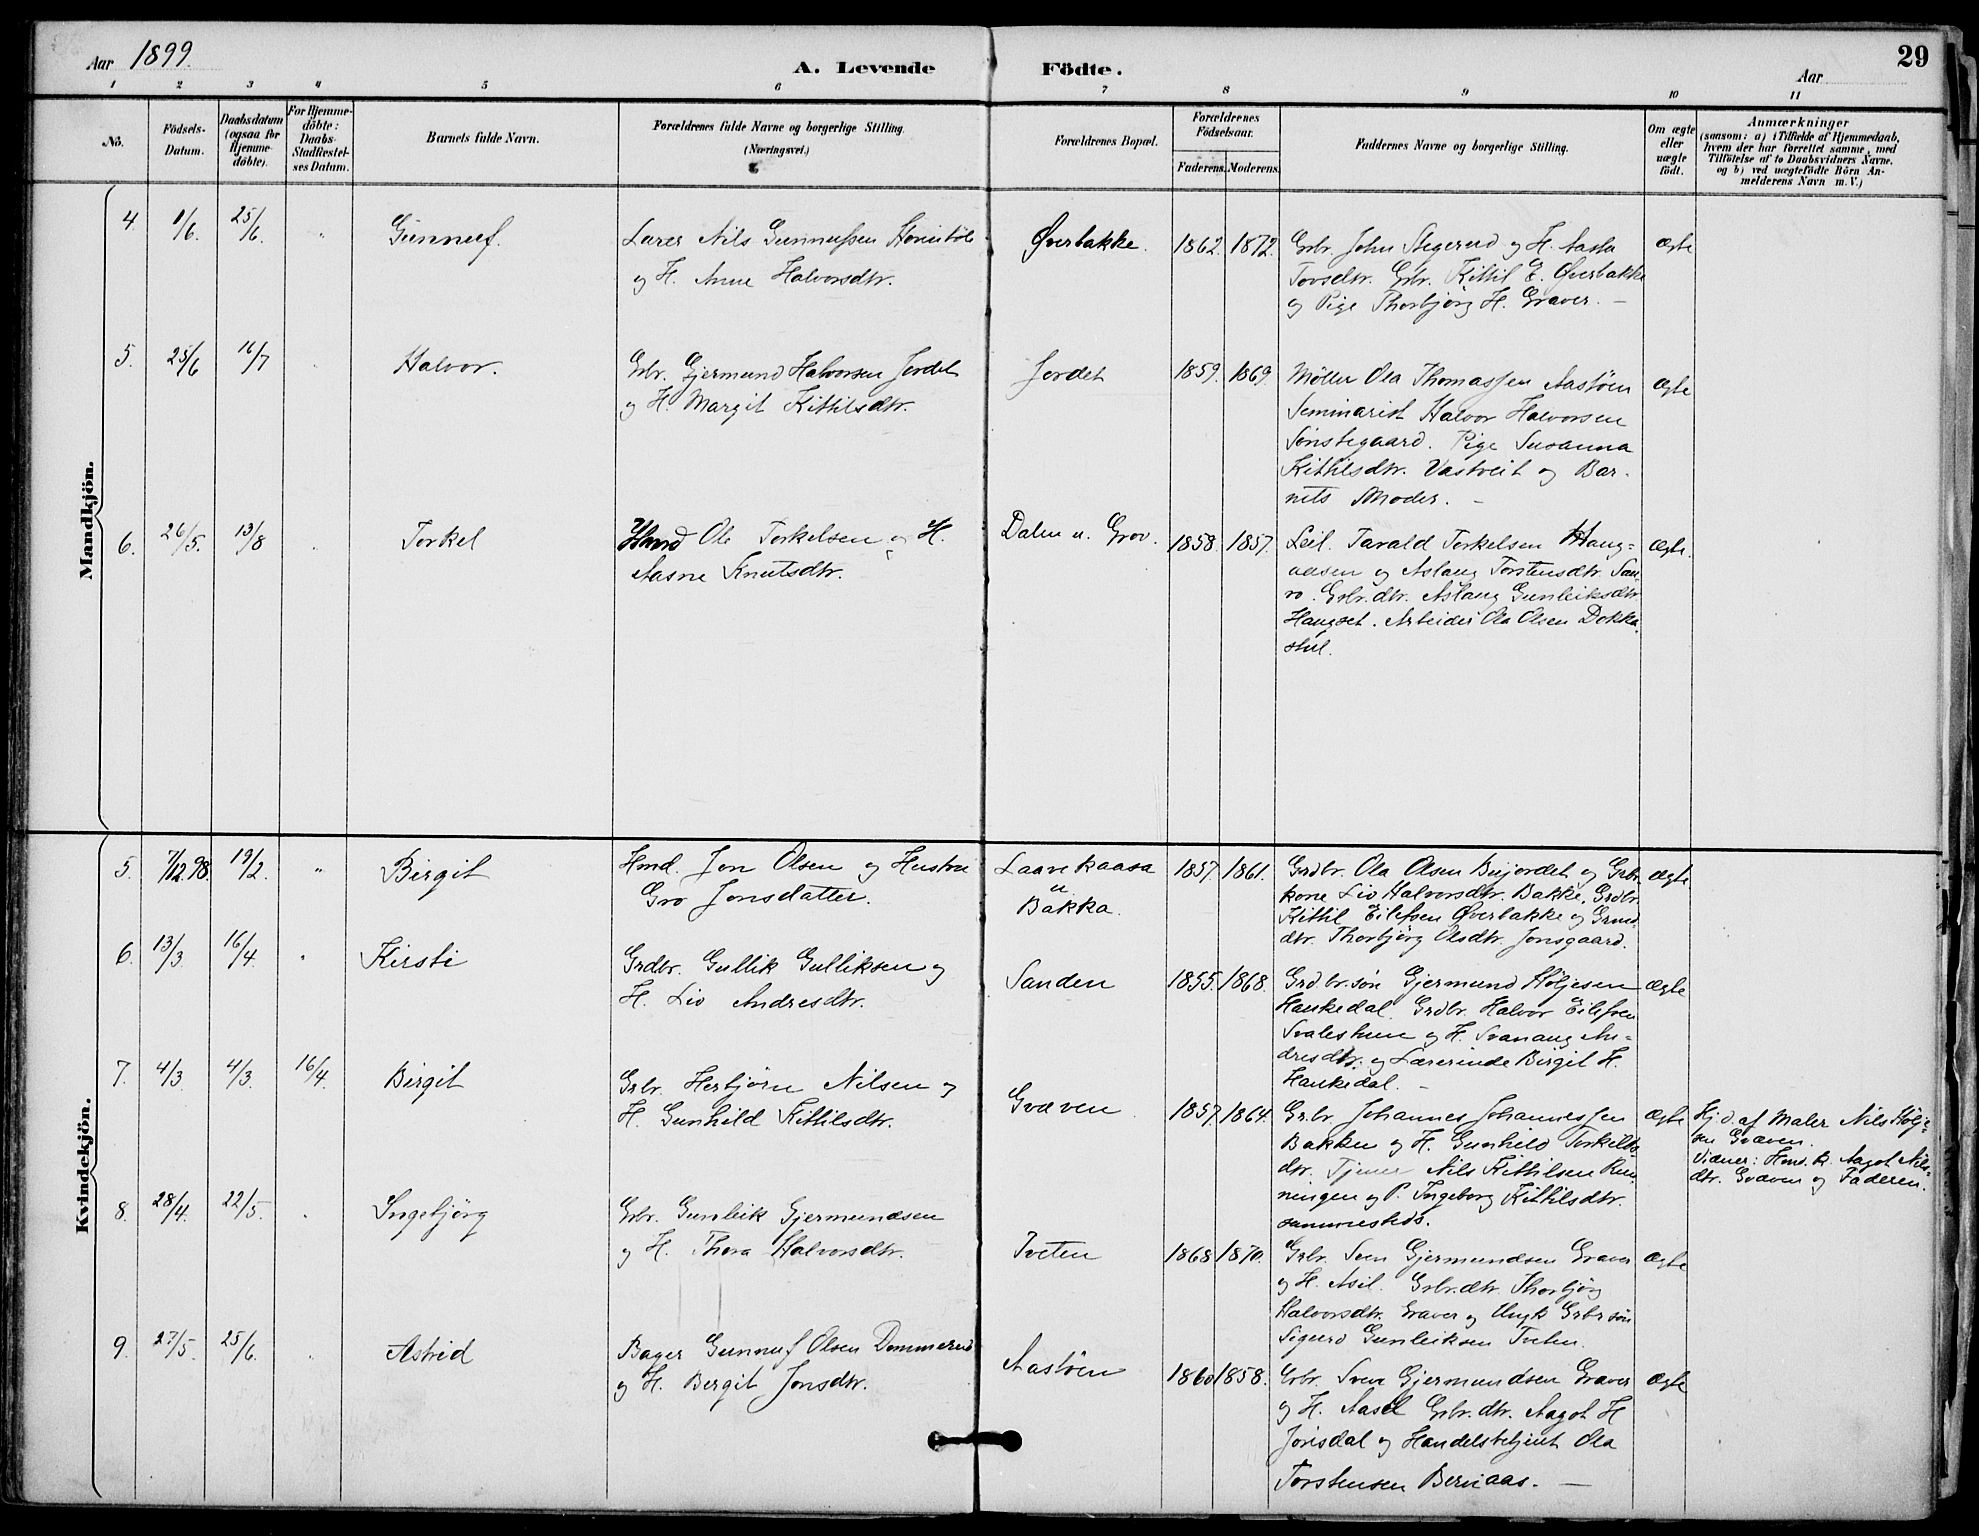 Aar 1899.
A. Levende Födte.
Aar
29
1 2 3 4 5 6 7 8 9 10 11
No.
Födsels-
Datum.
Daabsdatum
(ogsaa for
Hjemme-
döbte).
For Hjemme-
döbte:
Daabs-
Stadfæstel-
ses Datum.
Barnets fulde Navn.
Forældrenes fulde Navne og borgerlige Stilling.
(Næringsvei.)
Forældrenes Bopæl.
Forældrenes
Födselsaar.
Faderens. Moderens.
Faddernes Navne og borgerlige Stilling.
Om ægte
eller
uægte
födt.
Anmærkninger
(saasom: a) i Tilfælde af Hjemmedaab,
hvem der har forrettet samme, med
Tilföielse af to Daabsvidners Navne.
og b) ved uægtefödte Börn An-
melderens Navn m. V.)
Mandkjön.
4. 1/6. 25/6. "
Gunnuf.
Lærer Nils Gunnufsen
og H. Anne Halvorsdtr.
Øverbakke.
1862. 1872.
Grbr. John Stegerud og H. Aasta
Tovsdtr. Grbr. Kittil E. Øverbakke
og Pige Thorbjørg H. Graver. —
Ægte
5. 25/6 16/7
Halvor.
Grbr. Gjermund Halvorsen Jordet
og H. Margit Kittilsdtr.
Jordet
1859. 1869.
Møller Ola Thomassen Aastøen
Seminarist Halvor Halvorsen
Sønstegaard. Pige Susanna
Kittilsdtr. Vastveit og Bar-
nets Moder. —
Ægte
6. 26/5. 13/8
Torkel
Hmd Ole Torkelsen og H.
Aasne Knutsdtr.
Dalen u. Grov.
1858. 1857.
Leil. Tarald Torkelsen Haug-
aasen og Aslaug Torstensdtr. San-
ro. Grbr.dtr. Aslaug Gunleiksdtr.
Haugset. Arbeider Ola Olsen Dokka
stul.
Ægte.
Kvindekjön.
5. 7/12.98. 19/2. "
Birgit
Hmd. Jon Olsen og Hustru
Gro Jonsdatter.
Laavekaasa
u
Bakka.
1857. 1861.
Grdbr. Ola Olsen Bujordet og Grbr.
kone Liv Halvorsdtr. Bakke, Grdbr.
Kittil Eilefsen Øverbakke og
dtr. Thorbjørg Olsdtr. Jonsgaard.
ægte
6. 13/3 16/4. "
Kirsti
Grdbr. Gullik Gulliksen og
H. Liv Andresdtr.
Sanden
1855. 1868.
Grdbr.søn Gjermund Høljesen
Haukedal. Grdbr. Halvor Eilefsen
og H. Svanaug An-
dresdtr. og Lærerinde Birgit H.
Haukedal. —
ægte
7. 4/3 4/3. 16/4.
Birgit
Grbr. Herbjørn Nilsen og
H. Gunhild Kittilsdtr.
Gvæven
1857. 1864.
Grbr. Johannes Johannessen
Bakken og H. Gunhild Torkels
dtr. Tjener Nils Kittilsen Run-
ningen og P. Ingeborg Kittilsdtr.
sammesteds.
Ægte
Hj.d. af Maler Nils Hølje-
sen Gvæven.
Vidner: Hmd.k. Aagot Nils-
dtr. Gvæven og Faderen.
8. 28/4. 22/5. "
Ingebjørg
Grbr. Gunleik Gjermundsen
og H. Thora Halvorsdtr.
Tveten
1868 1870.
Grbr. Sven Gjermundsen Graver
og H. Asil. Grbr.dtr. Thorbjørg
Halvorsdtr. Graver og Ungk. Grbr.søn
Sigurd Gunleiksen Tveten.
Ægte
9. 27/5. 25/6. "
Astrid
Bager Gunnuf Olsen Dommerud
og H. Bergit Jonsdtr.
Aastøen
1860 1858.
Grbr. Sven Gjermundsen Graver
og H. Aasil Grbr.dtr. Aagot H
Jonsdal og Handelsbetjent Ola
Torstensen Bernaas. —
Ægte